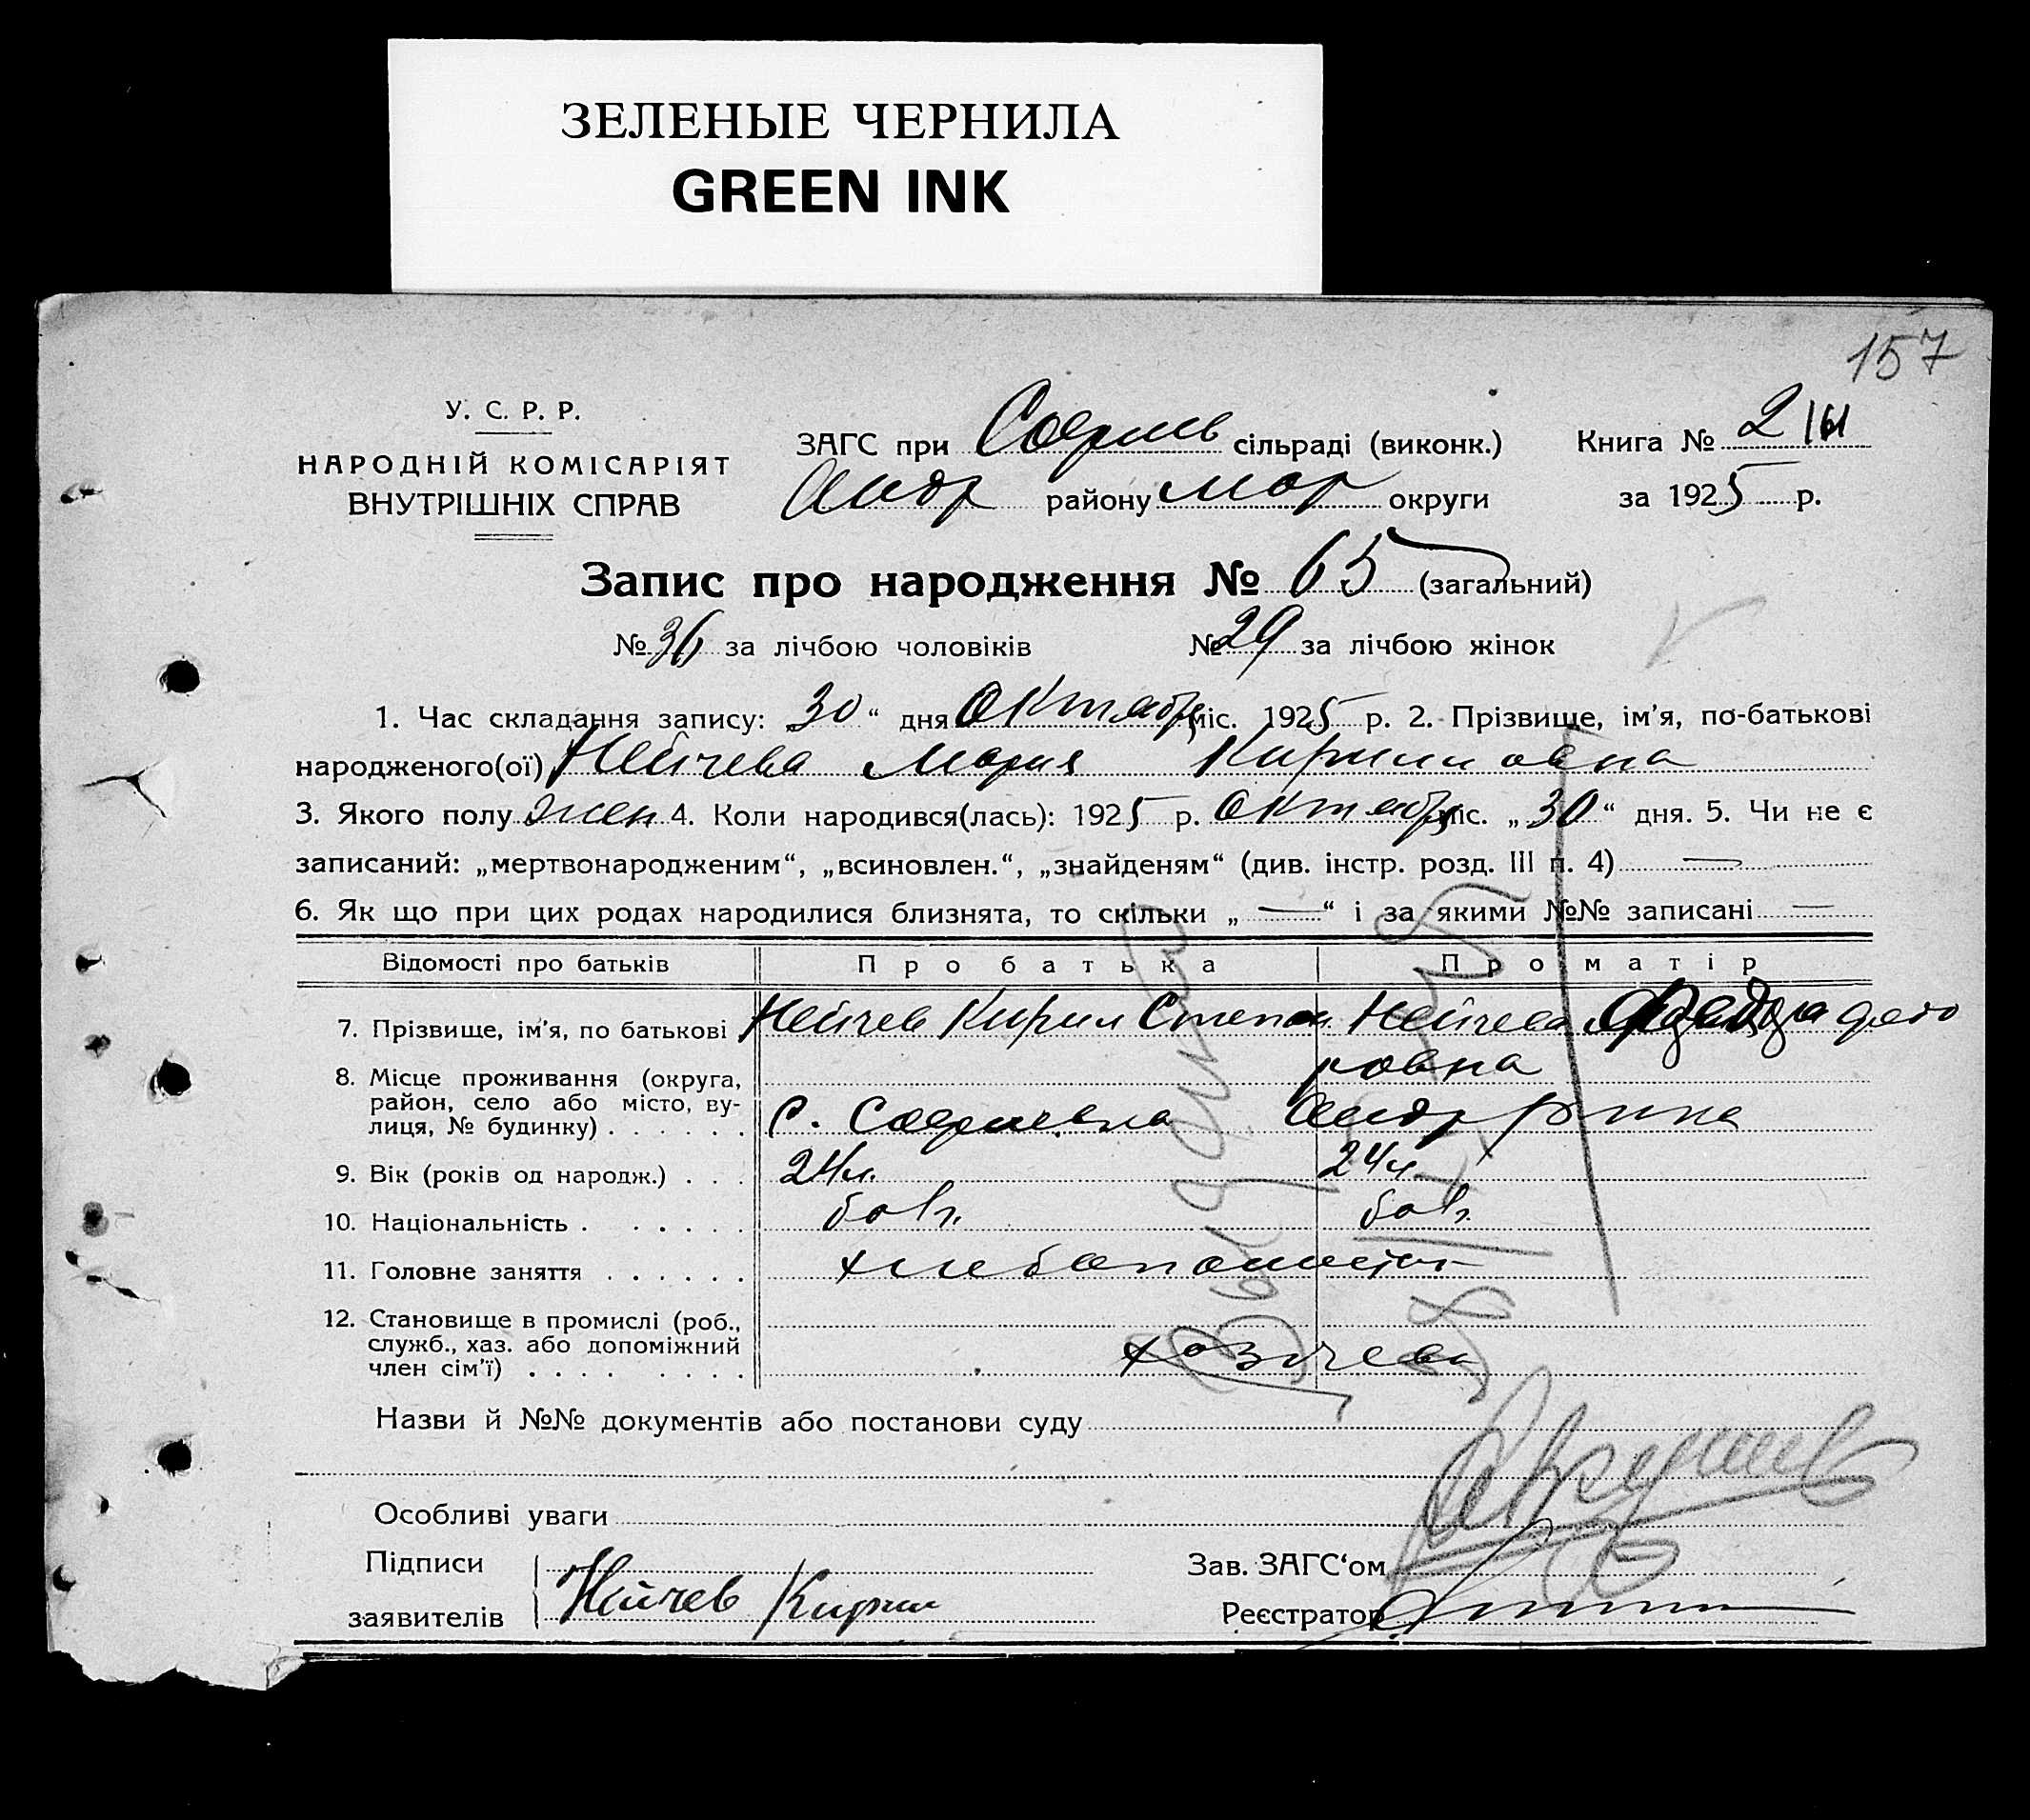 ЗЕЛЕНЫЕ ЧЕРНИЛА
GREEN INK
157
У. С. Р. Р.
НАРОДНІЙ КОМІСАРІЯТ
ВНУТРІШНІХ СПРАВ
ЗАГС при Софиев сільраді (виконк.)
Андр району Мар округи
Книга № 2
за 1925 р.
Запис про народження № 65 (загальний)
№ 36 за лічбою чоловіків № 29 за лічбою жінок
1. Час складання запису: „30“ дня Октября міс. 1925 р. 2. Прізвище, ім’я, по-батькові
народженого(ої) Нейчева Мария Кирилловна
3. Якого полу жен 4. Коли народився(лась): 1925 р. Октября міс. „30“ дня. 5. Чи не є
записаний: „мертвонародженим“, „всиновлен.“, „знайденям“ (див. інстр. розд. III п. 4) —
6. Як що при цих родах народилися близнята, то скільки „—“ і за якими №№ записані —
Відомості про батьків Про батька Про матір
7. Прізвище, ім’я, по батькові Нейчев Кирил Степан Нейчева Федо
ровна
8. Місце проживання (округа,
район, село або місто, ву-
лиця, № будинку) . . . . . . с. Софиевка Андр р
9. Вік (років од народж.) . . . 24 л. 24 л.
10. Національність . . . . . болг. болг.
11. Головне заняття . . . . . . хлебопашест
12. Становище в промислі (роб.,
служб., хаз. або допоміжний
член сім’ї) . . . . . . . .
Назви й №№ документів або постанови суду
Особливі уваги
Підписи
заявителів Нейчев Кирил
Зав. ЗАГС‘ом
Реєстратор